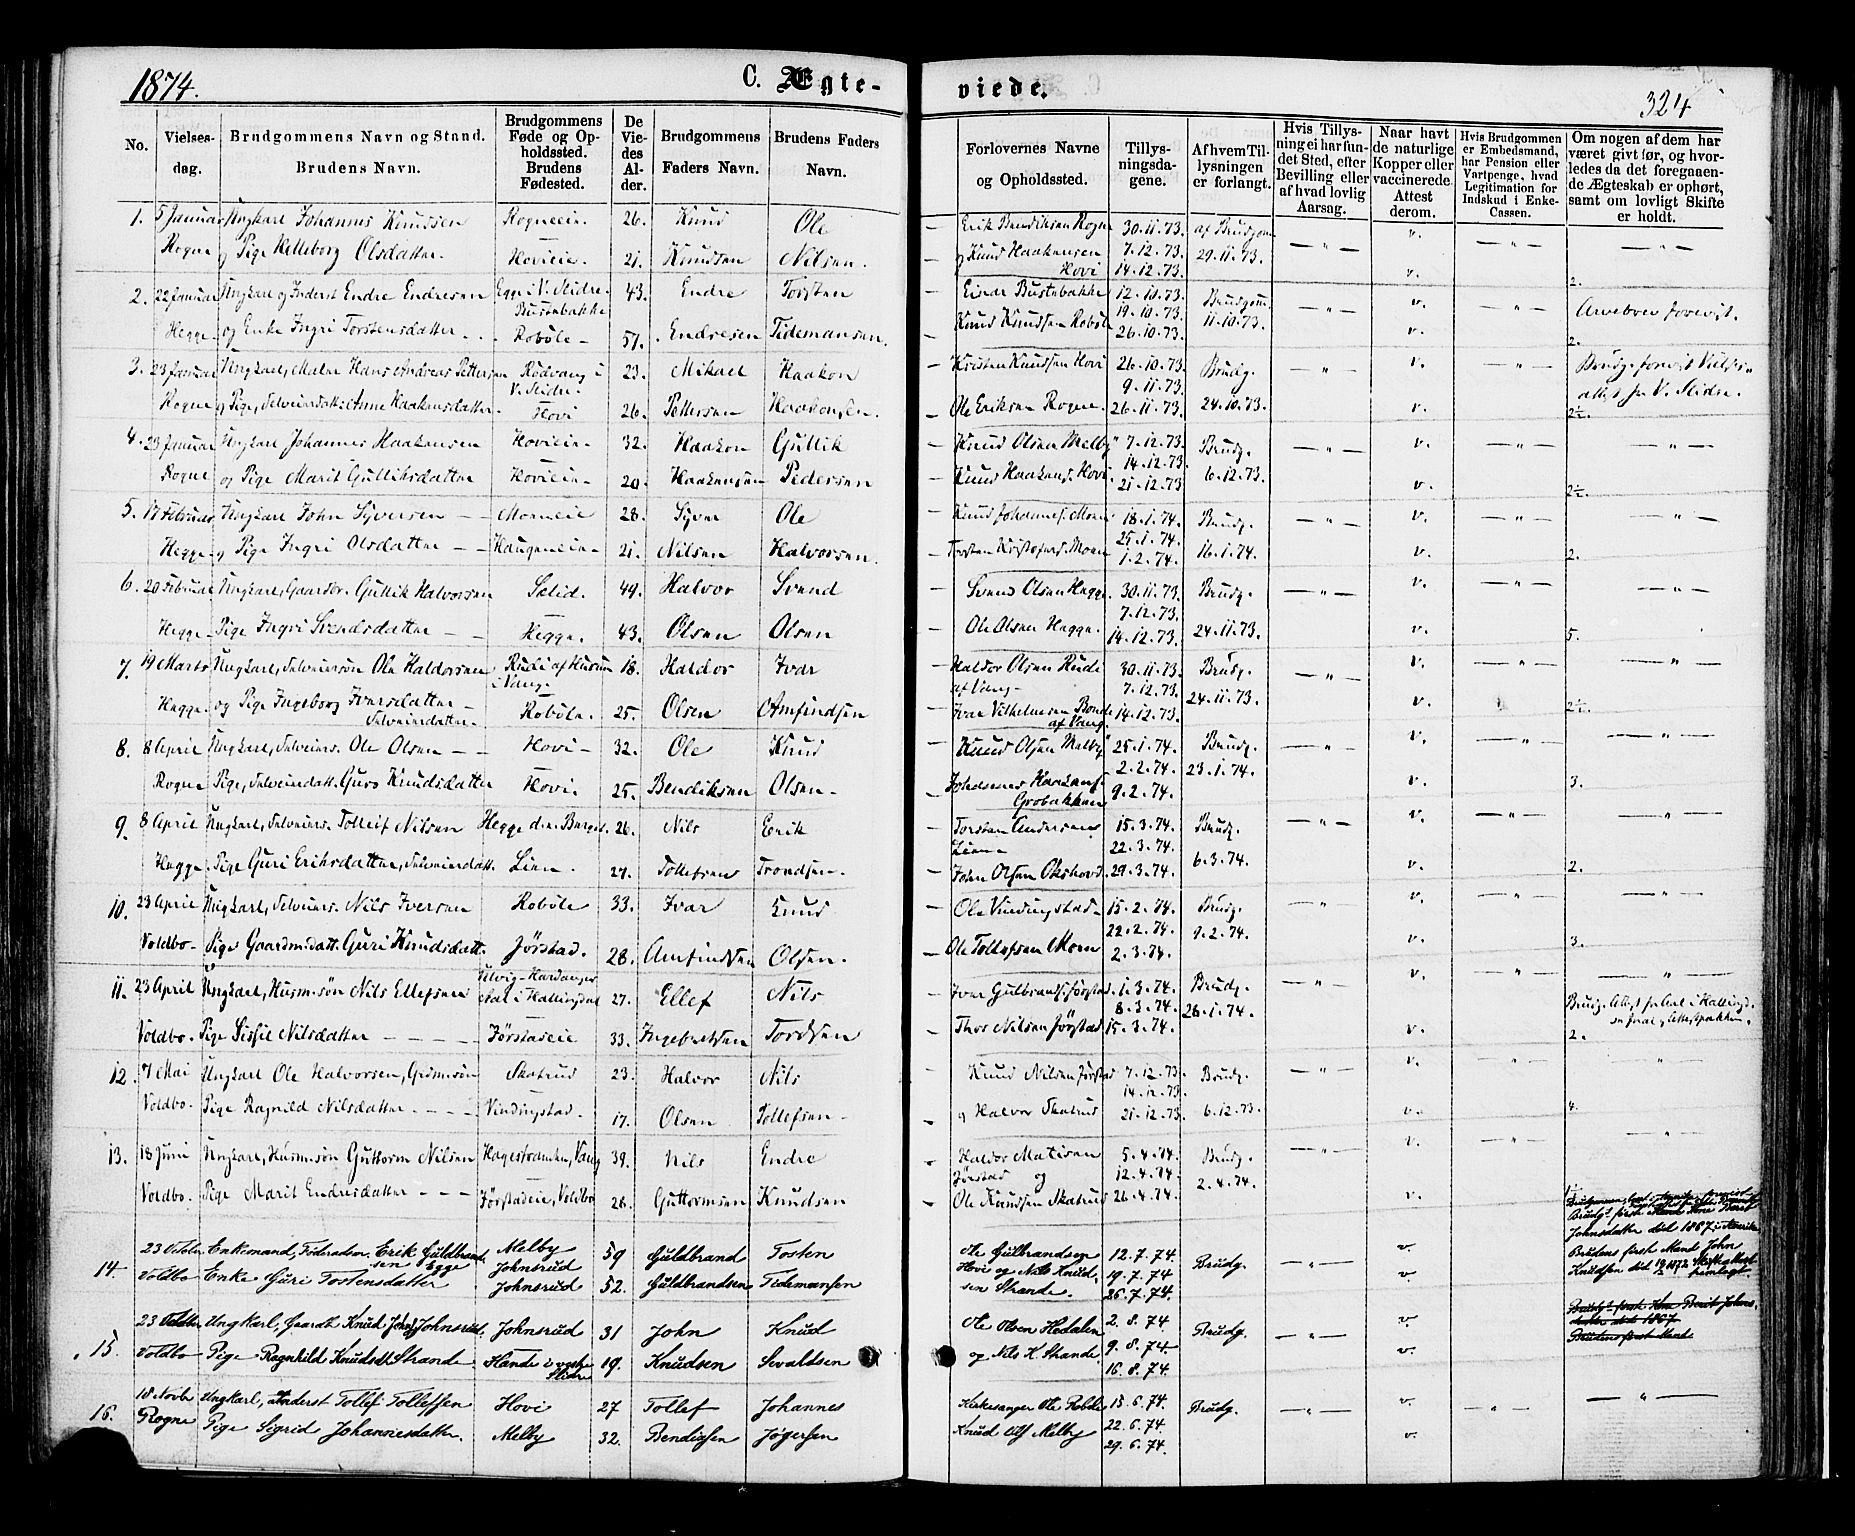 1874.
C. Ægte-
viede.
324
No.
Vielses-
dag.
Brudgommens Navn og Stand.
Brudens Navn.
Brudgommens
Føde og Op-
holdssted.
Brudens
Fødested.
De
Vie-
des
Al-
der.
Brudgommens
Faders Navn.
Brudens Faders
Navn.
Forlovernes Navne
og Opholdssted.
Tillys-
ningsda-
gene.
Af hvem Til-
lysningen
er forlangt.
Hvis Tillys-
ning ei har fun-
det Sted, efter
Bevilling eller
af hvad lovlig
Aarsag.
Naar havt
de naturlige
Kopper eller
vaccinerede
Attest
derom.
Hvis Brudgommen
er Embedsmand,
har Pension eller
Vartpenge, hvad
Legitimation for
Indskud i Enke-
Cassen.
Om nogen af dem har
været givt før, og hvor-
ledes da det foregaaen-
de Ægteskab er ophørt,
samt om lovligt Skifte
er holdt.
1. 5 Januar Ungkarl Johannes Knudsen Rogneeie. 26. Knud Ole Erik Bendiksen Rogne 30.11.73. af Brudgom
Rogne og Pige Helleborg Olsdatter. Hovieie. 21. Knudsen Nilsen. og Knud Haakensen 7.12.73. 29.11.73.
Hovi 14.12.73. 2.
2. 22 Januar Ungkarl og Inderst Endre Endresen Egge i V. Slidre. 43. Endre Torsten Endre Bustebakke 12.10.73. Brudgom
Bustebakke 19.10.73. 11.10.73. Arvebrev forevist.
Hegge og Enke Ingri Torstensdatter Robøle 57. Endresen Tidemansen. Knud Knudsen Robøle 26.10.73. 2.
3. 23 Januar Ungkarl, Maler Hans Andreas Pettersen Rødvang i 23. Mikael Haakon Kristen Knudsen Hovi 26.10.73. Brudg. Brudg. forevist
V. Slidre. 9.11.73. attest fra V. Slidre.
Rogne og Pige, Selveierdatt: Anne Haakensdatter Hovi 26. Pettersen Haakonsen. Ole Eriksen Rogne. 26.11.73. 24.10.73. 2½.
4. 23 Januar Ungkarl Johannes Haakensen Hovieie 32. Haakon Gullik Knud Olsen Melby 7.12.73. Brudg.
14.12.73.
Rogne og Pige Marit Gulliksdatter Hovieie 20. Haakensen Pedersen Knud Haakens. Hovi 21.12.73 6.12.73. 2½.
5. 17 Februar Ungkarl John Syversen Moeneie 28. Syver Ole Knud Johannes. Moen 18.1.74. Brudg.
25.1.74.
Hegge og Pige Ingri Olsdatter Haugeneie 21. Nilsen Halvorsen. Torsten Kristofers. Moen 1.2.74. 16.1.74. 2.
6. 20 Februar Ungkarl, Gaardbr. Gullik Halvorsen Selid. 44. Halvor Svend Svend Olsen Hegge. 30.11.73. Brudg.
7.12.73.
Hegge Pige Ingri Svendsdatter Hegge. 43. Olsen Olsen Ole Olsen Hegge. 14.12.73. 24.11.73. 5.
7. 19 Marts Ungkarl, Selveiersøn Ole Haldorsen Rudi af Hurum 18. Haldor Ivar Haldor Olsen Rudi 30.11.73. Brudg.
i Vang af Vang 7.12.73. 24.11.73.
Hegge og Pige Ingeborg Ivarsdatter Robøle. 25. Olsen Amfindsen Ivar Vilhelmsen Bunde 14.12.73. 2½.
Selveierdatter. af Vang
8. 8 April Ungkarl, Selveiers. Ole Olsen Hovi 32. Ole Knud Knud Olsen Melby 25.1.74. Brudg.
2.2.74. 23.1.74.
Rogne Pige, Selveierdatt. Guro Knudsdatter Hovi. 25. Bendiksen Olsen Johannes Haakens. 9.2.74. 3.
Grobakken
9. 8 April Ungkarl, Selveiers. Tolleif Nilsen Hegge 26. Nils Erik Torsten Andersen 15.3.74. Brudg.
Lien 22.3.74. 6.3.74.
Hegge. Pige Guri Eriksdatter, Selveierdatt. Lien. 27. Tollefsen Trondsen. John Olsen Okshovd. 29.3.74. 2.
10. 23 April Ungkarl, Selveiers. Nils Iversen Robøle 33. Ivar Knud Ole Vindingstad 15.2.74. Brudg.
22.2.74. 9.2.74.
Voldbo Pige Gaardm.datt. Guri Knudsdatt. Jørstad. 28. Amfindsen Olsen. Ole Tollefsen Moen 2.3.74. 3.
11. 23 April Ungkarl, Husm.søn Nils Ellefsen Ulvig-Hardanger 27. Ellef Nils Ivar Gulbrands. Jørstad 1.3.74. Brudg. Brudg. Attest fra Aal i Hallingd.
Aal i Hallingdal 8.3.74. 26.1.74.
Voldbo. Pige Sissil Nilsdatter Jørstadeie 33. Ingebretsen Tordsen Thor Nilsen Jørstad 15.3.74. 2.
12. 7 Mai Ungkarl Ole Halvorsen, Grdm.søn Skatrud 23. Halvor Nils Knud Nilsen Jørstad 7.12.73. Brudg.
14.12.73.
Voldbo. Pige Ragnild Nilsdatter Vindingstad. 17. Olsen Tollefsen og Halvor Skatrud 21.12.73. 6.12.73. 4.
13. 18 Juni Ungkarl, Husm.søn Guttorm Nilsen Hagestrømmen, Vang 39. Nils Endre Haldor Matisen 5.4.74. Brudg.
Jørstad og 12.4.74. 2.4.74.
Voldbo. Pige Marit Endresdatter Jørstadeie, Voldbo 26. Guttormsen Knudsen Ole Knudsen Skatrud 26.4.74.
Brudg. første Kone Berit
Johnsdatter død 1867 i Amerika
14. 23 Octbr Enkemand, Føderaadsm. Erik Guldbrand- Melby 59 Guldbrand Tosten Ole Gulbrandsen 12.7.74. Brudg. Brudens først Mand John
sen Egge Johnsrud Hovi og Nils Knud- 19.7.74 Knudsen død 1872
Voldbo Enke Guri Tostensdatter Johnsrud 52. Guldbrandsen Tidemansen sen Strande. 26.7.74.
15. 23 Octbr Ungkarl, Gaardb. Knud Johnsrud. Johnsrud 31 John Knud Ole Olsen Hedalen 2.8.74 Brudg. Brudg. først Kone Berit Johns-
datter død 1867
Voldbo Pige Ragnhild Knudsdt Strande Strande i vestre 19. Knudsen Sevaldsen og Nils K. Strande. 9.8.74 Brudens først Mand
Slidre 16.8.74.
16. 18 Novbr Ungkarl, Inderst Tollef Tollefsen Hovi 27 Tollef Johannes Kirkesanger Ole Robøle 15.6.74. Brudg.
Rogne Pige Sigrid Johannesdatter. Melby 32. Bendigsen Jøgersen Knud Ols Melby 22.6.74.
29.6.74.